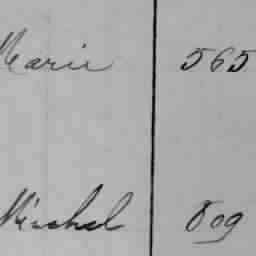 Marie 565
Michel 809